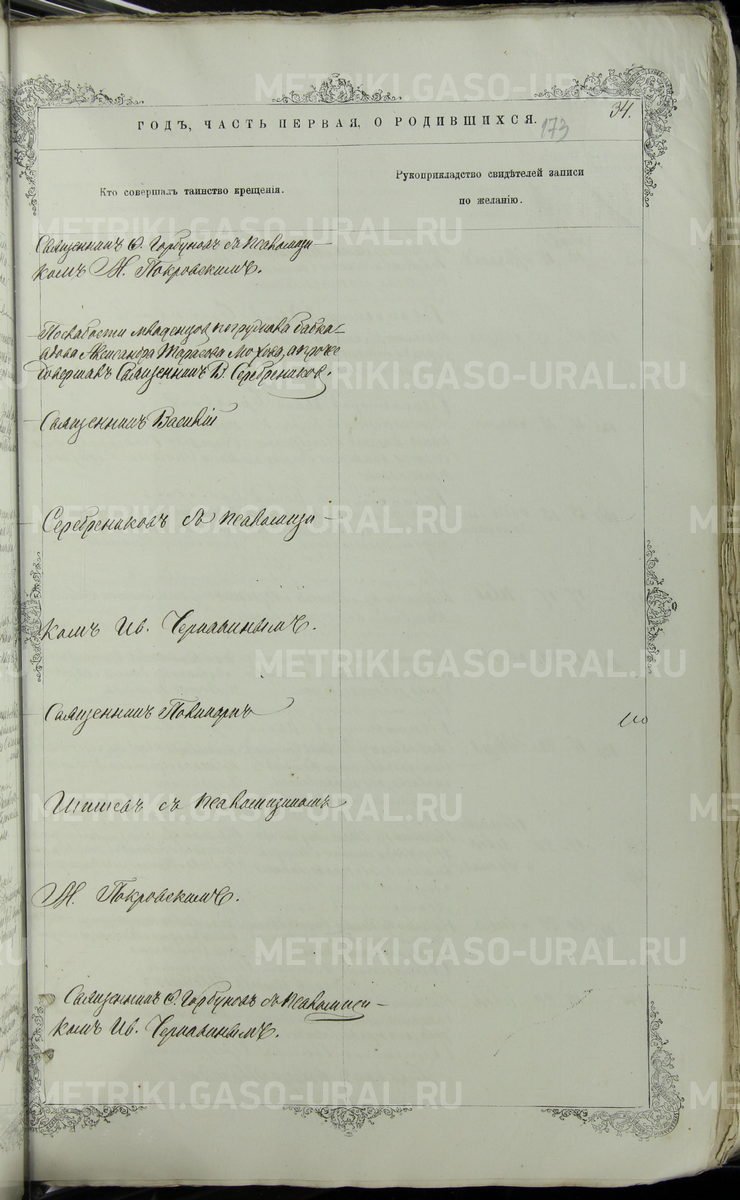 METRIKI.GASO-URAL.RU
34.
ГОДЪ, ЧАСТЬ ПЕРВАЯ, О РОДИВШИХСЯ.
173
Кто совершалъ таинство крещенія.
Рукоприкладство свидѣтелей записи
по желанію.
Священникъ Ѳ. Горбуновъ съ псаломщи-
комъ М. Покровскимъ.
По слабости младенца погружала бабка
Александра Тарасова Мохова, а прочее
совершалъ Священникъ В. Серебрениковъ.
Священникъ Василій
Серебрениковъ съ псаломщи-
комъ Ив. Чернавинымъ.
Священникъ Поликарпъ
Шишевъ съ псаломщикомъ
М. Покровскимъ.
Священникъ Ѳ. Горбуновъ съ псаломщи-
комъ Ив. Чернавинымъ.